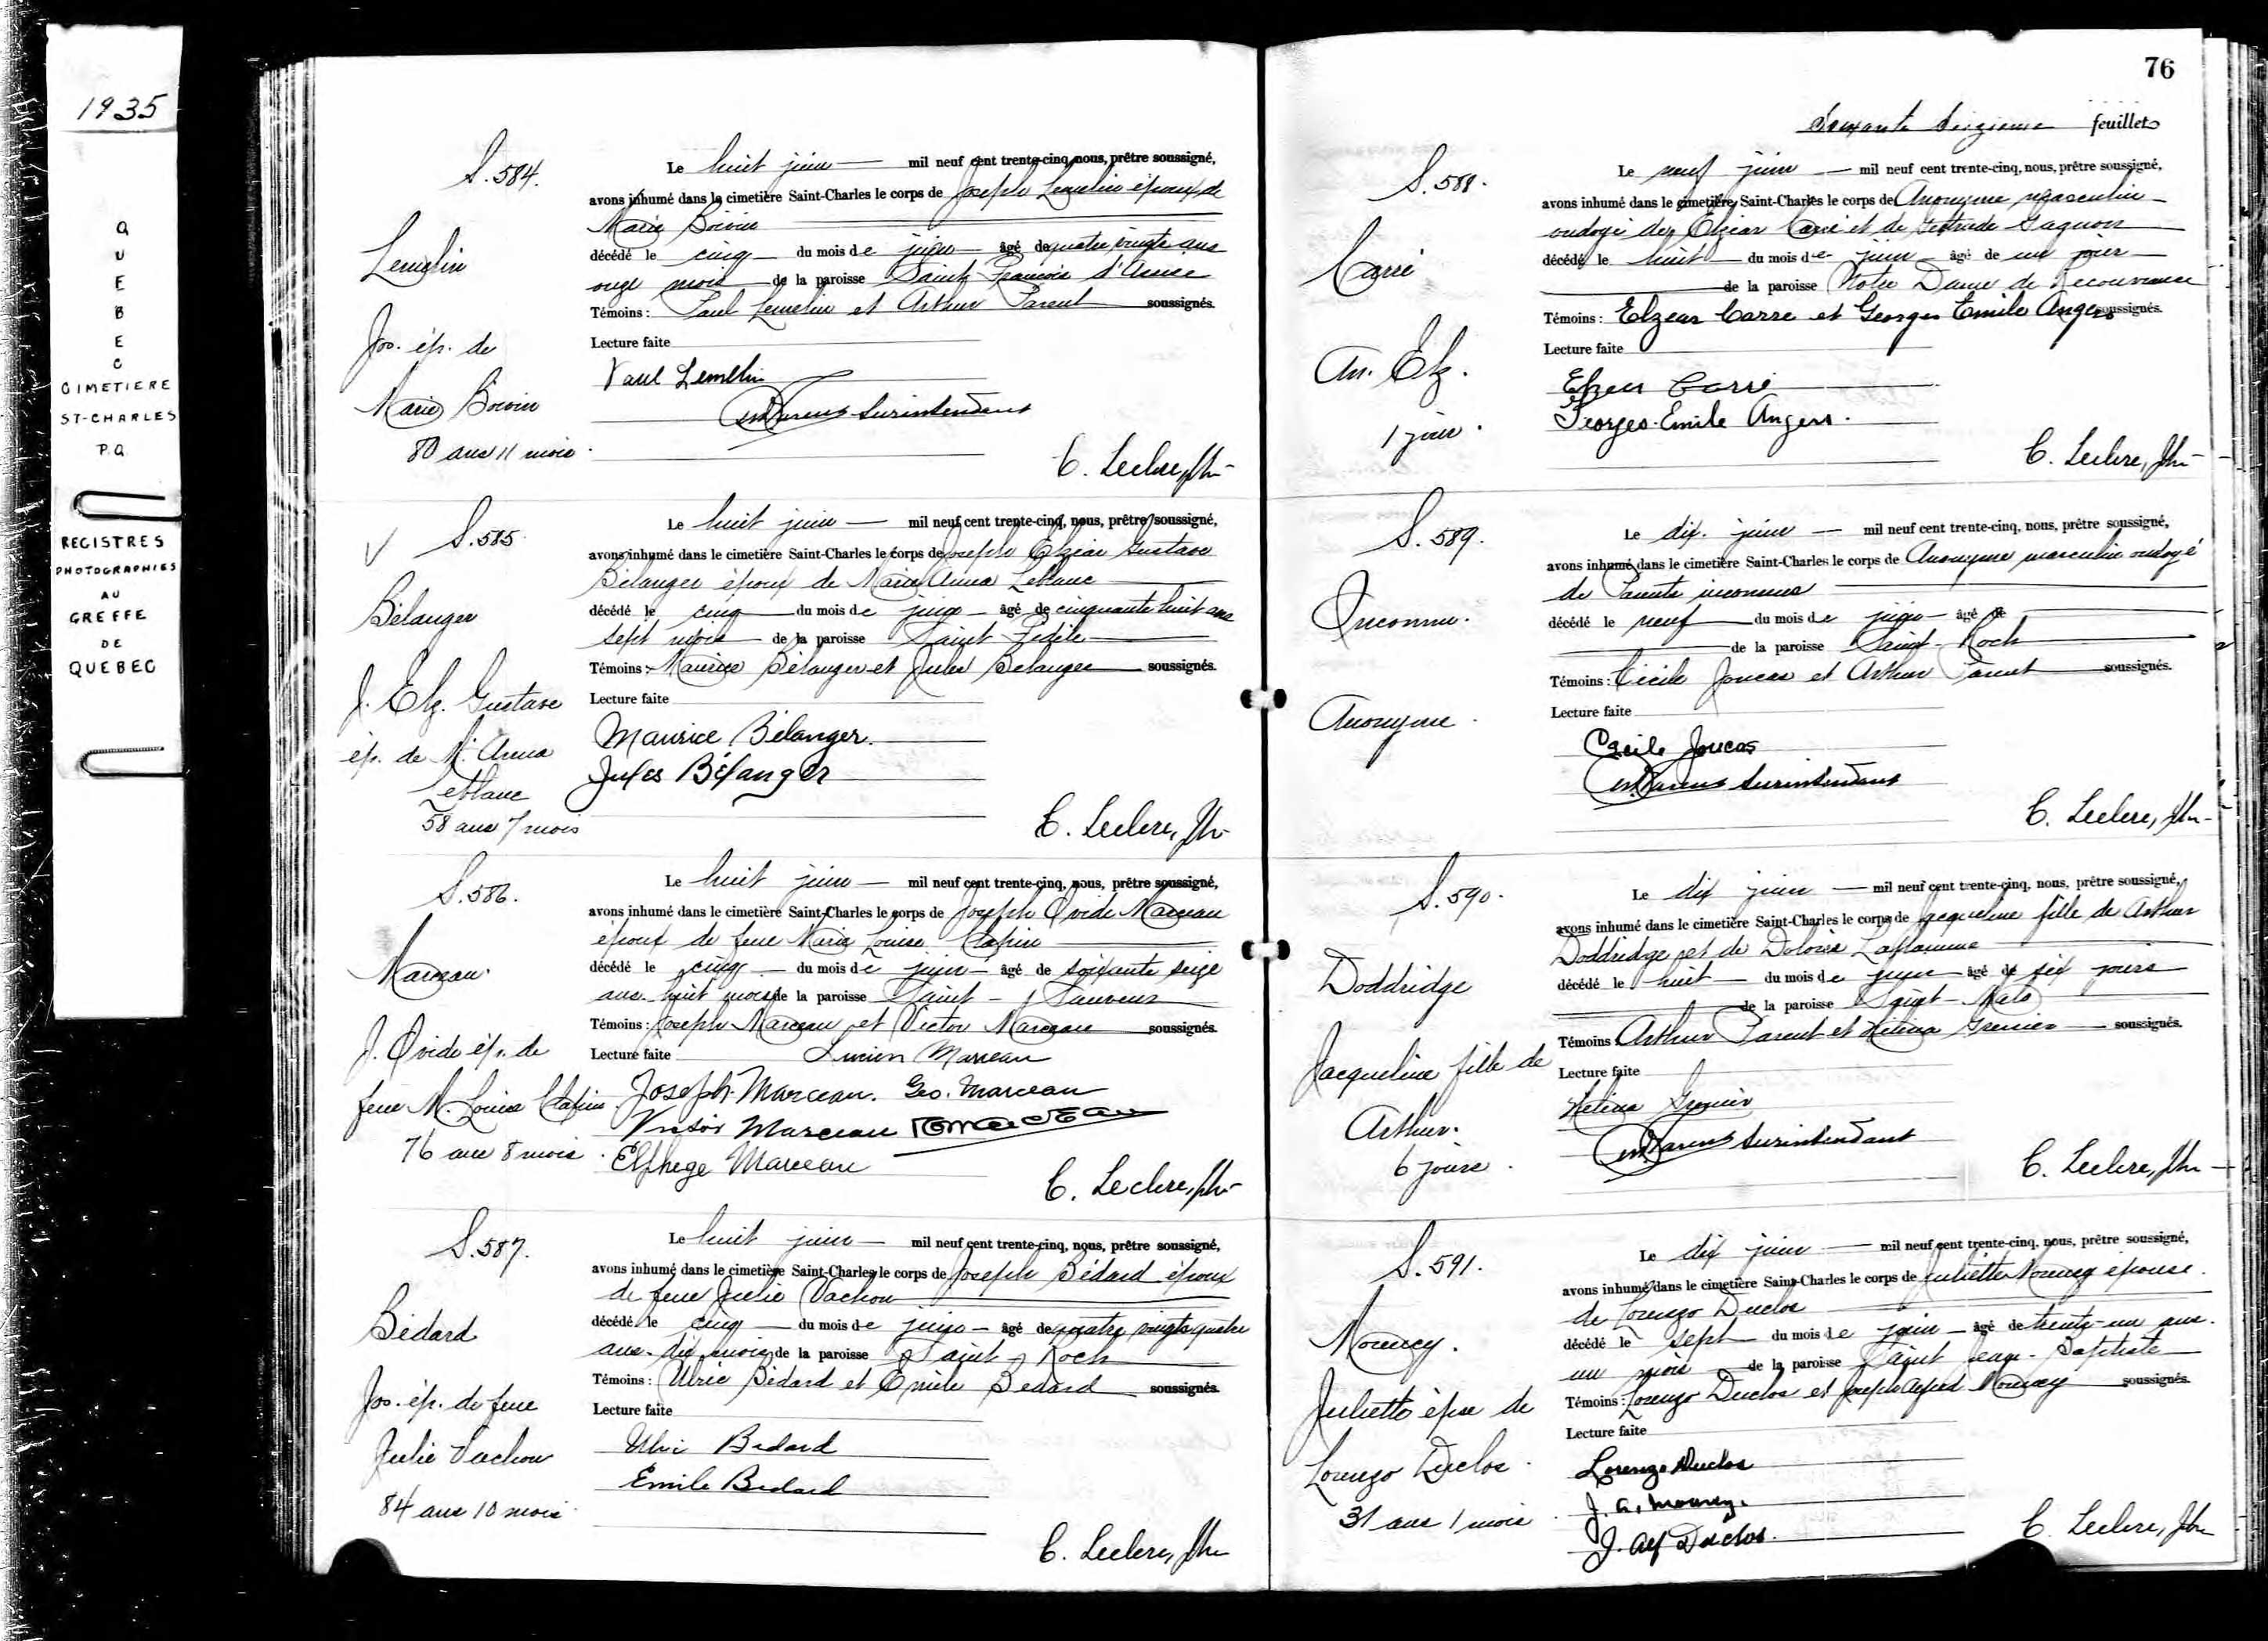 1935
QUEBEC
CIMETIERE
ST-CHARLES
P.Q
REGISTRES
PHOTOGRAPHIES
AU
GREFFE
DE
QUEBEC
S.584.
Lemelin
Jos. ép. de
Marie Boivin
80 ans 11 mois
Le huit juin — mil neuf cent trente-cinq, nous, prêtre soussigné,
avons inhumé dans le cimetière Saint-Charles le corps de Joseph Lemelin époux de
Marie Boivin
décédé le cinq du mois de juin âgé de quatre vingts ans
onze mois de la paroisse Saint François d'Assise
Témoins : Paul Lemelin et Arthur Parent soussignés.
Lecture faite
Paul Lemelin
Parent Surintendant
C. Leclerc, ptr
S.585.
Bélanger
J. Elz. Gustave
ép. de M. Anna
Leblanc
58 ans 7 mois
Le huit juin — mil neuf cent trente-cinq, nous, prêtre soussigné,
avons inhumé dans le cimetière Saint-Charles le corps de Joseph Elzéar Gustave
Bélanger époux de Marie Anna Leblanc
décédé le cinq du mois de juin âgé de cinquante huit ans
sept mois de la paroisse Saint Fidèle
Témoins : Maurice Bélanger et Jules Bélanger soussignés.
Lecture faite
Maurice Bélanger.
Jules Bélanger
C. Leclerc, ptr
S.586.
Marceau
J. Ovide ép. de
feue M. Louise
76 ans 8 mois
Le huit juin — mil neuf cent trente-cinq, nous, prêtre soussigné,
avons inhumé dans le cimetière Saint-Charles le corps de Joseph Ovide Marceau
époux de feue Marie Louise
décédé le cinq du mois de juin âgé de soixante seize
ans huit mois de la paroisse Saint-Sauveur
Témoins : Joseph Marceau et Victor Marceau soussignés.
Lecture faite Lucien Marceau
Joseph Marceau. Geo. Marceau
Victor Marceau
Elphege Marceau
C. Leclerc, ptr
S.587.
Bédard
Jos. ép. de feue
Julie Vachon
84 ans 10 mois
Le huit juin — mil neuf cent trente-cinq, nous, prêtre soussigné,
avons inhumé dans le cimetière Saint-Charles le corps de Joseph Bédard époux
de feue Julie Vachon
décédé le cinq du mois de juin âgé de quatre vingts quatre
ans dix mois de la paroisse Saint Roch
Témoins : Ulric Bédard et Emile Bédard soussignés.
Lecture faite
Ulric Bedard
Emile Bedard
C. Leclerc, ptr
76
Soixante seizieme feuillets
S.588.
Carré
An. Elz.
1 jour.
Le neuf juin — mil neuf cent trente-cinq, nous, prêtre soussigné,
avons inhumé dans le cimetière Saint-Charles le corps de Anonyme masculin
ondoyé de Elzéar Carré et de Gertrude Gagnon
décédé le huit du mois de juin âgé de un jour
de la paroisse Notre Dame de Recouvrance
Témoins : Elzear Carre et Georges Emile Angers soussignés.
Lecture faite
Elzear Carré
Georges-Emile Angers.
C. Leclerc, ptr
S.589.
Inconnu.
Anonyme
Le dix juin — mil neuf cent trente-cinq, nous, prêtre soussigné,
avons inhumé dans le cimetière Saint-Charles le corps de Anonyme masculin ondoyé
de Parents inconnus
décédé le neuf du mois de juin âgé de
de la paroisse Saint-Roch
Témoins : Cécile Joncas et Arthur Parent soussignés.
Lecture faite
Cécile Joncas
Parent Surintendant
C. Leclerc, ptr
S.590.
Doddridge
Jacqueline fille de
Arthur.
6 jours.
Le dix juin — mil neuf cent trente-cinq, nous, prêtre soussigné,
avons inhumé dans le cimetière Saint-Charles le corps de Jacqueline fille de Arthur
Doddridge et de Dolorès Laflamme
décédé le huit du mois de juin âgé de six jours
de la paroisse Saint-Malo
Témoins : Arthur Parent et Grenier soussignés.
Lecture faite
Grenier
Parent Surintendant
C. Leclerc, ptr
S.591.
Mouncey.
Juliette épse de
Lorenzo Duclos.
31 ans 1 mois
Le dix juin — mil neuf cent trente-cinq, nous, prêtre soussigné,
avons inhumé dans le cimetière Saint-Charles le corps de Juliette Mouncey épouse
de Lorenzo Duclos
décédé le sept du mois de juin âgé de trente-un ans
un mois de la paroisse Saint Jean-Baptiste
Témoins : Lorenzo Duclos et Joseph Alfred Mouncey soussignés.
Lecture faite
Lorenzo Duclos
J. A. Mouncey.
J. Alf Duclos.
C. Leclerc, ptr